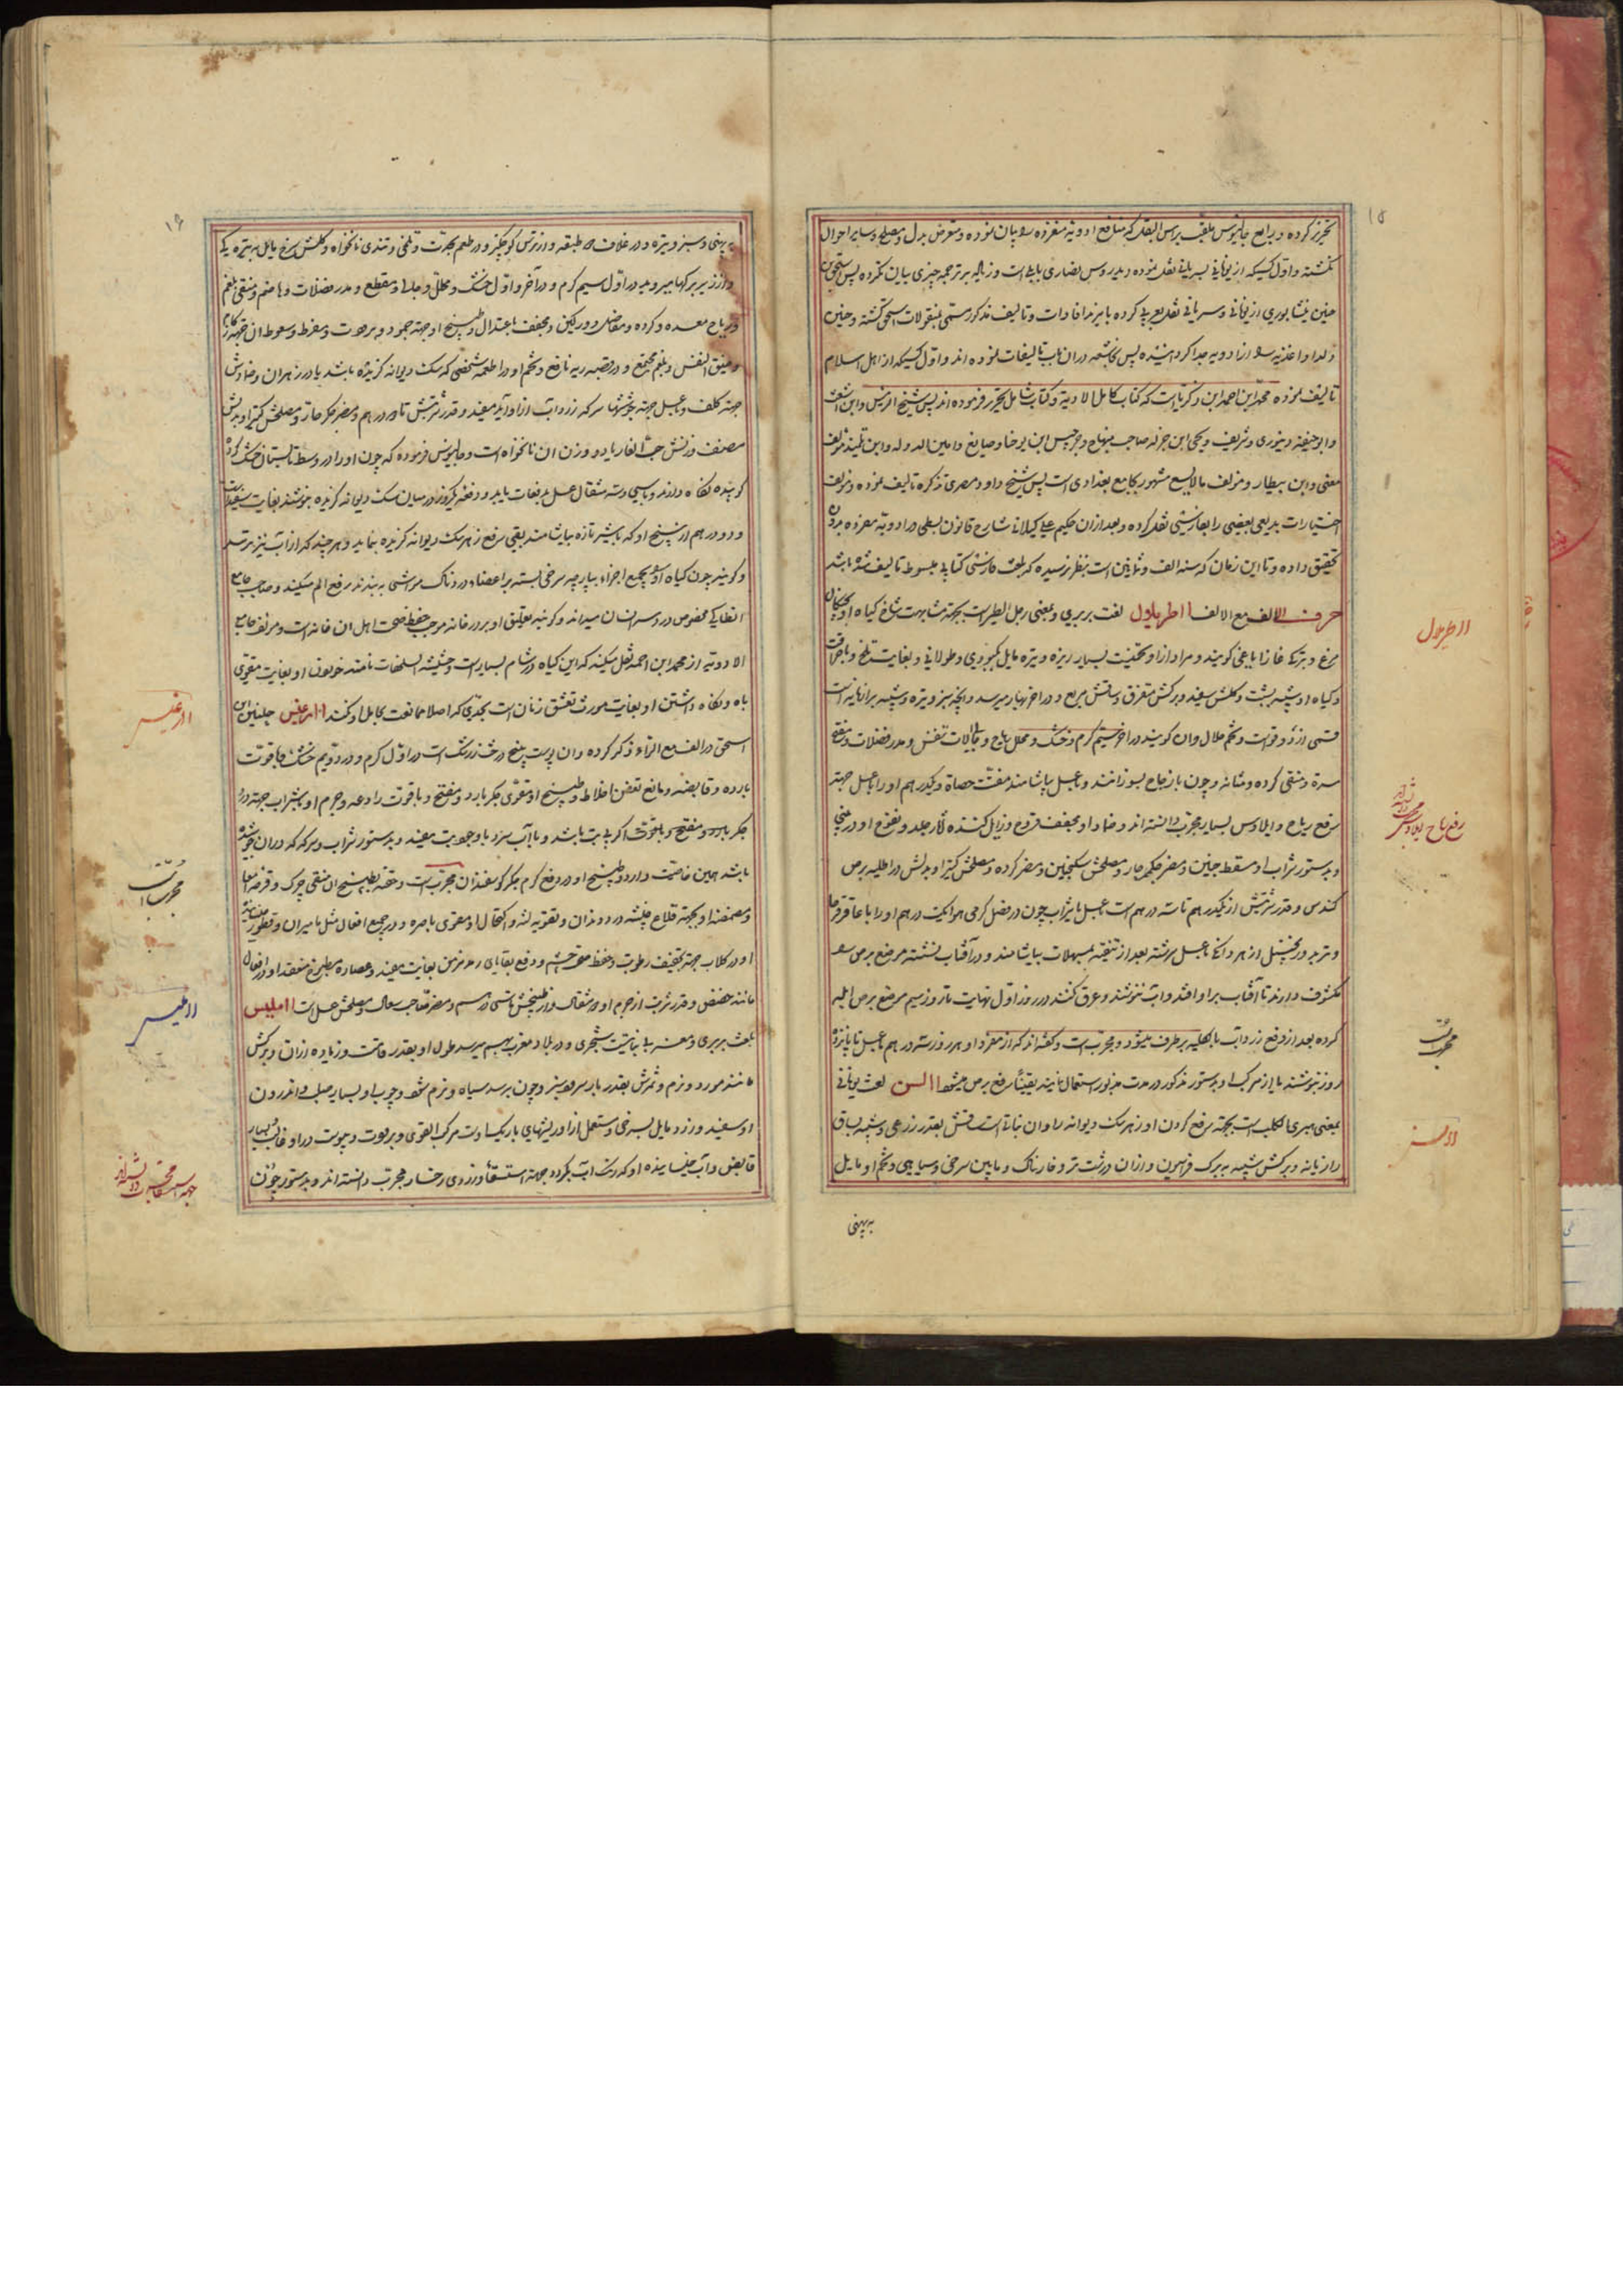 ۱۵
تحریر کرده و بدامع جالینوس ملقب برس البغل که منافع ادویه مفرده را بیان نموده و متعرض بدل و مصلح و سایر احوال
نکشته و اول کسیکه از یونانی بسریانی نقل نموده دیدروس نصاری بابلی است و زیاده بر ترجمه چیزی بیان نکرده پس اسحق بن
حنین نیشابوری از یونانی و سریانی نقل بعربی کرده با مزید افادات و تالیف مذکور مسمی بمنقولات اسحق کشته و حنین
ولد او اغذیه را از ادویه جدا کردانیده پس نجاشعه در ان باب تالیفات نموده اند و اول کسیکه از اهل اسلام
تالیف نموده محمد ابن احمد ابن زکریا است که کتاب کامل الادویة و کتاب شامل تحریر فرموده اند پس شیخ الرئیس و ابن اشعث
و ابو حنیفه دینوری و شریف و یحیی ابن جزله صاحب منهاج و جرجیس ابن یوحنا و صایغ و امین الدوله و ابن تلمیذ مؤلف
مغنی و ابن بیطار و مؤلف مالایسع مشهور بجامع بغدادی است پس شیخ داود مصری تذکره تالیف نموده و مؤلف
اختیارات بدیعی بعضی را بفارسی نقل کرده و بعد از ان حکیم علی کیلانی شارح قانون بسطی در ادویه مفرده
تحقیق داده و تا این زمان که سنه الف و ثمانین است بنظر نرسیده که بلغت فارسی کتابی مبسوط تالیف شده باشد
حرف الالف مع الالف ااطریلال لغت بربری و بمعنی رجل الطیر است بجهة مشابهت شاخ کیاه او بچنکال
مرغ و بترکی غازایاغی کویند و مراد از او تخمیست بسیار ریزه و تیره مایل بکبودی و طولانی و بغایت تلخ و با حرافت
و کیاه او شبیه بشبت و کلش سفید و برکش متفرق و ساقش مربع و در اخر بهار میرسد و انچه سبز و تیره و شبیه برازیانه است
قسمی از دوقو است و تخم خلال و ان کویند در اخر سیم کرم و خشک و محلل ریاح و الات تنفس و مدر فضلات و مفتح
سده و منقی کرده و مثانه و چون با زجاج بسوزانند و با عسل بیاشامند مفتت حصاة و یکدرهم او را با عسل جهة
رفع ریاح و ایلاوس بسیار مجرب دانسته اند و ضماد او مجفف قروح و زایل کننده آثار جلد
و بدستور شراب او مسقط جنین و مضر جکر حار و مصلحش سکنجبین و مضر کرده و مصلحش کتیرا و بدلش در اطلیه برص
کندس و قدر شربتش از یکدرهم تا سه درهم است با عسل یا شراب چون در فصل کرمی هوا یکدرهم او را با عاقرقرحا
و تربد و زنجبیل از هر دانکی با عسل سرشته بعد از تنقیه بمسهلات بیاشامند و در آفتاب نشسته موضع برص را
مکشوف دارند تا آفتاب بر او افتد و آب ننوشند و عرق کنند در روز اول نهایت تا روز سیم موضع برص ابله
کرده بعد از دفع زرداب بالکلیه بر طرف میشود و مجرب است و کفته اند که از مفرد او هر روز سه درهم با عسل تا پانزده
روز بنوشند یا از مرکب او بدستور مذکور در مدت مزبور استعمال نمایند یقینا رفع برص میشود االسن لغت یونانی
بمعنی مبری الکلب است بجهة رفع کردن او زهر سک دیوانه را و ان نباتی است ساقش بقدر زرعی و شبیه بساق
رازیانه و برکش شبیه ببرک فراسیون و از ان درشت تر و خارناک و مابین سرخی و سیاهی و تخم او مایل
به پهنی
ااطریلال
رفع ریاح ایلاوس مجرب دانسته اند
مجربست
االسن
۱۶
به پهنی و سبز و تیره و در غلاف دو طبقه و از ترمس کوچکتر و در طعم بحدت و تلخی و تندی نانخواه و کلش سرخ مایل بتیره یکی
و از زیر برکها میروید در اول سیم کرم و در آخر و اول خشک و محلل و جالی و مقطع و مدر فضلات و هاضم و منقی بلغم
و ریاح معده و کرده و مفاصل و ورکین و مجفف باعتدال و طبیخ او جهة جمود و برودت و سعوط ان جهة زکام
و ضیق النفس و بلغم مجتمع در قصبه ریه نافع و تخم او در اطعمه شخصی که سک دیوانه کزیده باشد پادزهر ان و ضمادش
جهة کلف و با عسل جهة جوششها که زرداب از او آید مفید و قدر شربتش تا دو درهم و مضر جکر حار و مصلحش کتیرا و بدلش
نصف وزنش حب الغار یا دو وزن ان نانخواه است و جالینوس فرموده که چون او را در وسط تابستان خشک کرده
کوبیده نکاه دارند و با سی و سه مثقال عسل بدفعات باید و دفعه یکروز در میان سک دیوانه کزیده بنوشند بغایت مفید است
و دو درهم از بیخ او که با شیر تازه بیاشامند یقین رفع زهر سک دیوانه کزیده بنماید و هر چند که از آب نیز بترسد
و کویند چون کیاه او را بجمیع اجزاء بپارچه سرخی بسته بر اعضاء دردناک مواشی ببندند رفع الم میکند و صاحب جامع
انطاکی مخصوص درد سر انسان میداند و کویند تعلیق او بر در خانه موجب حفظ صحت اهل ان خانه است و مؤلف جامع
الادویه از محمد ابن احمد نقل میکند که این کیاه در شام بسیار است و حشیشة السلحفات نامند خوردن او بغایت مقوی
باه و نکاه داشتن او بغایت مورث تعشق زنان است بحدی که اصلا ممانعت بحامل او نکنند اارغیس حنین ابن
اسحق در الف مع الراء ذکر کرده و ان پوست بیخ درخت زرشک است در اول کرم و در دویم خشک و با قوت
بارده و قابضه و مانع تعفن اخلاط و طبیخ او مقوی جکر بارد و مفتح و با قوت رادعه و جرم او با شراب جهة درد
جکر بارد و مفتح و بلغوق اکر با تب باشد و با آب سرد با وجود تب مفید و بدستور شراب و سرکه که در ان جوشیده
باشد همین خاصیت دارد و طبیخ او در دفع کرم جکر کوسفندان مجرب است و حقنه بطبیخ ان منقی چرک و قرحه امعا
و مضمضه او بجهة قلاع خبیثه و درد دندان و تقویة لثه و اکتحال او مقوی باصره و در جمیع افعال مثل مامیران و قطور
او در کلاب جهة تجفیف رطوبت و حفظ صحت چشم و دفع بقایای رمد مزمن بغایت مفید و عصاره مطبوخ منعقد او در افعال
مانند حضض و قدر شربت از جرم او دو مثقال و از طبیخش تا سی درهم و مضر صاحب سعال و مصلحش عسل است ااملیس
بلغت بربری و مغربی نباتیست شجری و در بلاد مغرب بهم میرسد طول او بقدر قامت و زیاده از ان و برکش
مانند مورد و نرم و ثمرش بقدر بار سرو و سبز و چون برسد سیاه و نرم شود و چوب او بسیار صلب و اندرون
او سفید و زرد مایل بسرخی و مستعمل از او ریشهای باریک اوست مرکب القوی و برودت و یبوست در او غالب و بسیار
قابض و آب خیسانیده او که درست آب بکیرد جهة استسقا و زردی رخسار مجرب دانسته اند و بدستور چون
اارغیس
مجربست
ااملیس
جهة استسقا مجرب دانسته اند